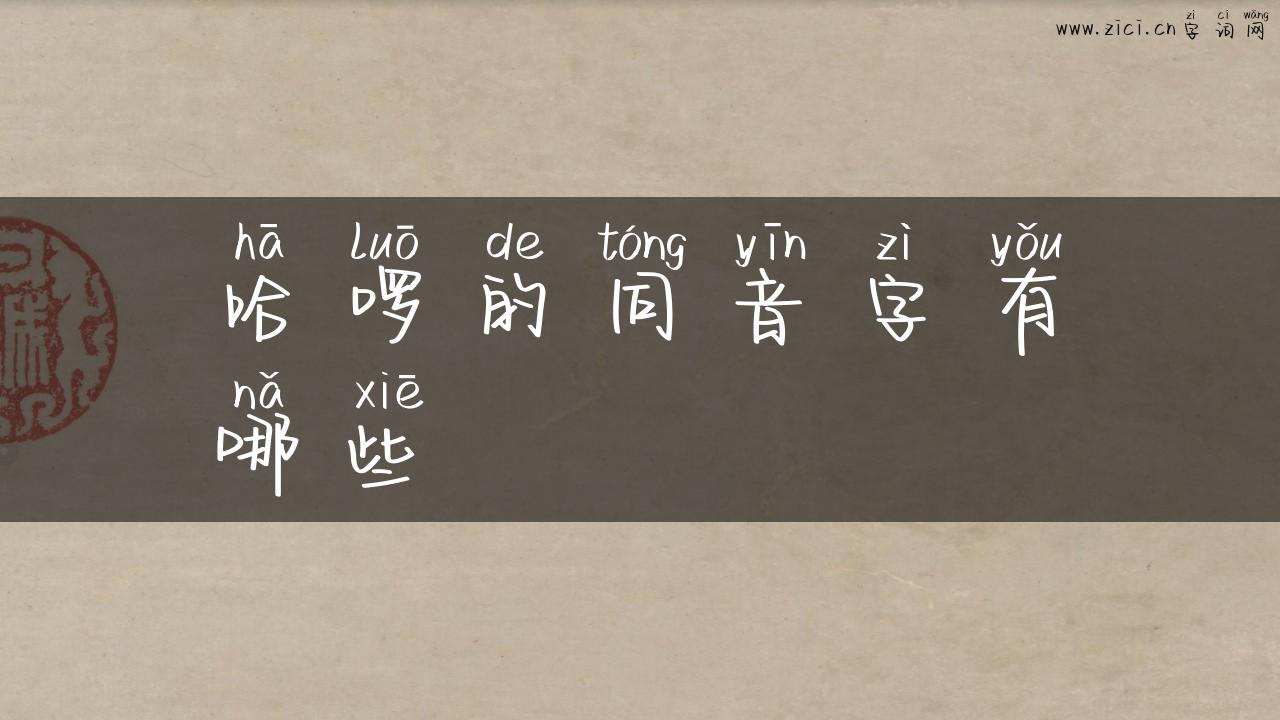 zì cí wǎng
www.zici.cn字词网
hā luō de tóng yīn zì yǒu
哈啰的同音字有
nǎ xiē
哪些